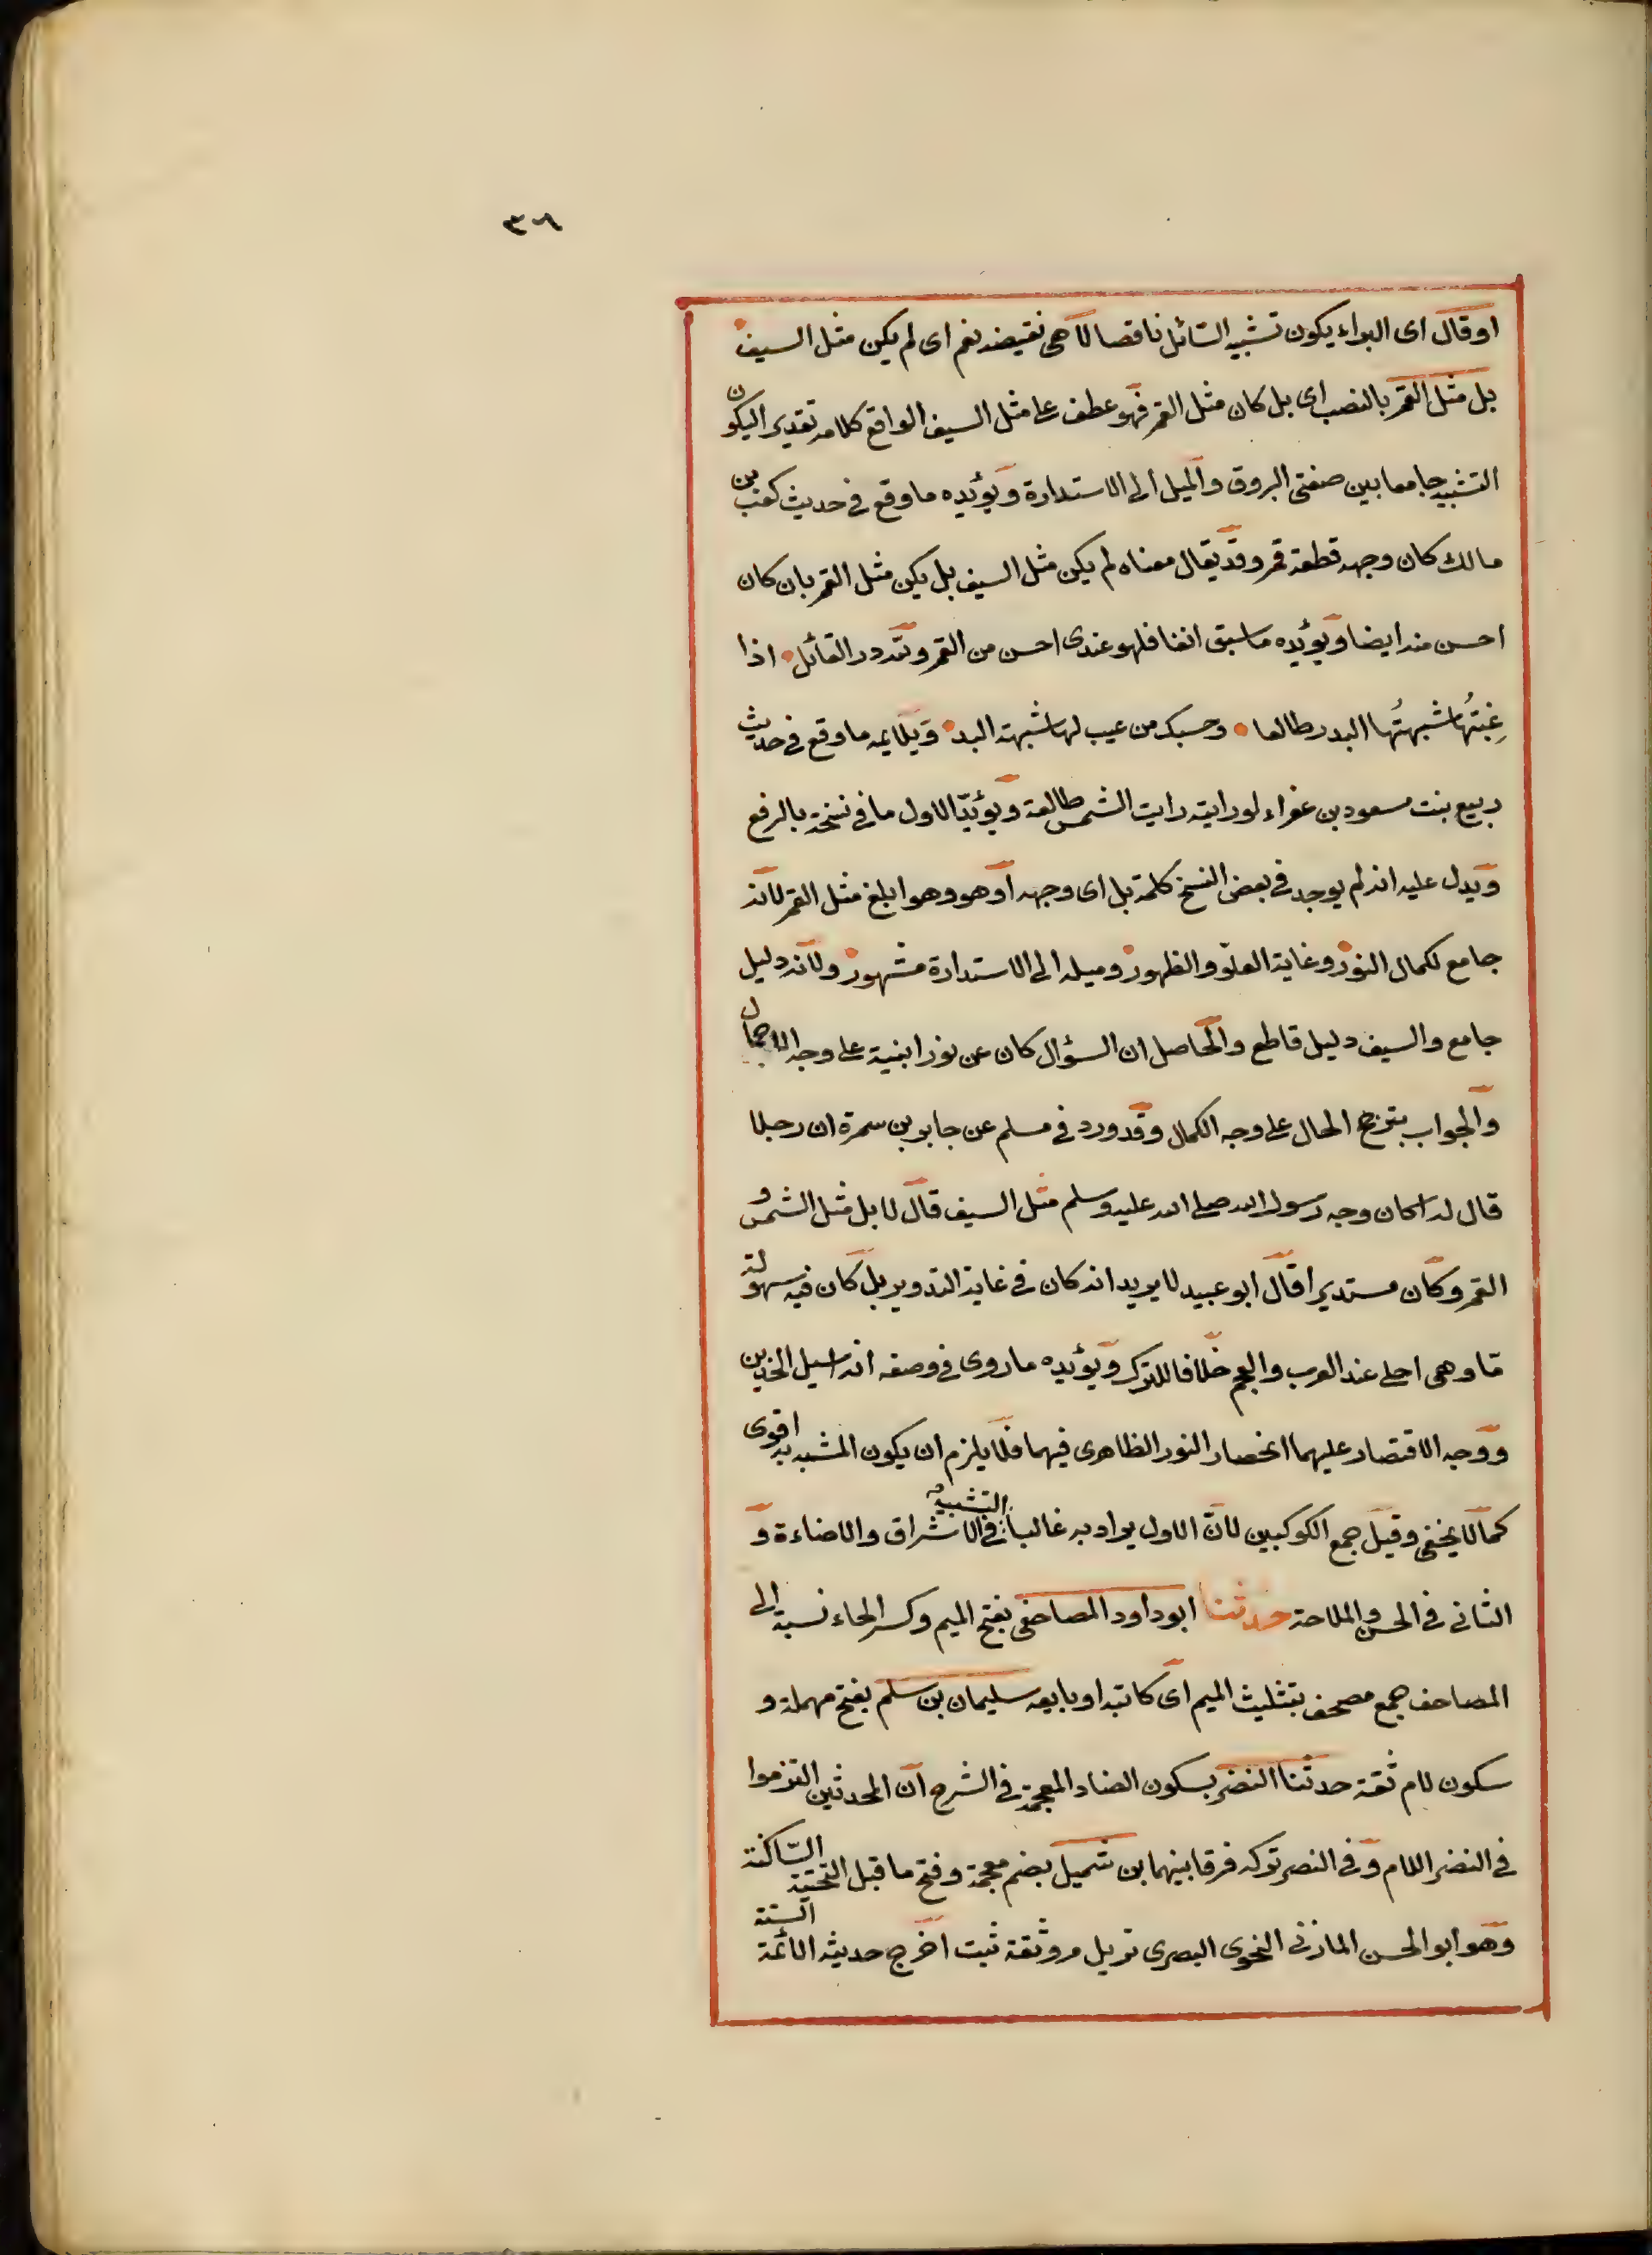 ٣٦
او قال اى البراء يكون تشبيه السائل ناقصا لا هى نقيضه نعم اى لم يكن مثل السيف
بل مثل القمر بالنصب اى بل كان مثل القمر فهو عطف على مثل السيف الواقع كلامه تقدير اليكون
التشبيه جامعا بين صفتى البروق والميل الى الاستدارة ويؤيده ما وقع فى حديث كعب بن
مالك كان وجهه قطعة قمر وقد يقال معناه لم يكن مثل السيف بل يكن مثل القمر بان كان
احسن منه ايضا ويؤيده ما سبق انفا فلهو عندى احسن من القمر وتدرر القائل اذا
عِبتُها شبهتُها البدر طالعا وحسبك من عيب لها شبهة البد ويلايمه ما وقع فى حديث
ربيع بنت مسعود بن عفراء لو رايته رايت الشمس طالعة ويؤيد الاول ما فى نسخة بالرفع
ويدل عليه انه لم يوجد فى بعض النسخ كلمة بل اى وجهه او هو وهو ابلغ مثل القمر لانه
جامع لكمال النور وغاية العلو والظهور وميله الى الاستدارة مشهور ولانه دليل
جامع والسيف دليل قاطع والحاصل ان السؤال كان عن نور ابنية على وجه الاجمال
والجواب بترجح الحال على وجه الكمال وقد ورد فى مسلم عن جابر بن سمرة ان رجلا
قال له اكان وجه رسول الله صلى الله عليه وسلم مثل السيف قال لا بل مثل الشمس و
القمر وكان مستديرا قال ابو عبيد لا يريد انه كان فى غاية التدوير بل كان فيه سهولة
مّا وهى احلى عند العرب والعجم خلافا للترك ويؤيده ما روى فى وصفه انه اسيل الخدين
ووجه الاقتصار عليهما انحصار النور الظاهرى فيهما فلا يلزم ان يكون المشبه به اقوى
كما لا يخفى وقيل جمع الكوكبين لانّ الاول يراد به غالبا التشبيه فى الاشراق والاضاءة و
الثانى فى الحسن والملاحة حدثنا ابو داود المصاحفى بفتح الميم وكسر الحاء نسبة الى
المصاحف جمع مصحف بتثليث الميم اى كاتبه او بايعه سليمان بن سلم بفتح مهملة و
سكون لام ثقة حدثنا النضر بسكون الضاد المعجمة فى الشرح ان المحدثين التزموا
فى النضر اللام وفى النصر تركه فرقا بينهما بن شميل بضم معجمة وفتح ما قبل التحتية السّاكنة
وهو ابو الحسن المازنى النحوى البصرى نزيل مرو ثقة ثبت اخرج حديثه الائمة الستة